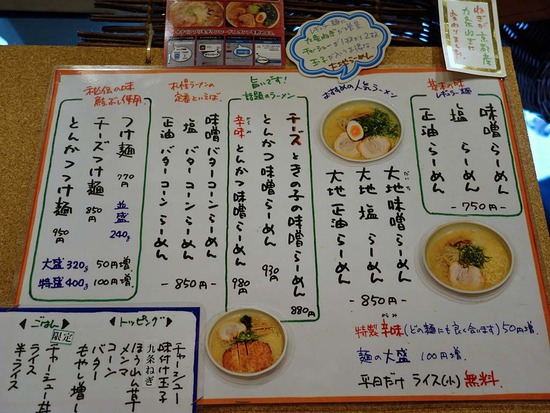 ねぎが京都産
九条ねぎに
変わりました。
基本の味
レギュラー麺
味噌らーめん
塩らーめん
正油らーめん
-750円-
おすすめの人気らーめん
大地味噌らーめん
大地塩らーめん
大地正油らーめん
-850円-
旨いです!
話題のラーメン
チーズときのこの味噌らーめん
880円
とんかつ味噌らーめん
930円
辛味とんかつ味噌らーめん
980円
札幌ラーメンの
定番といえば、
味噌バターコーンらーめん
塩バターコーンらーめん
正油バターコーンらーめん
-850円-
秘伝の味
鮭ぶし使用
つけ麺
770円
チーズつけ麺
850円
とんかつつけ麺
950円
並盛
240g
大盛320g 50円増
特盛400g 100円増
特製辛味(どの麺にも良く合います)50円増
麺の大盛 100円増
平日だけ ライス(小)無料
◀トッピング▶
チャーシュー
味付け玉子
九条ねぎ
ほうれん草
メンマ
コーン
バター
もやし増し
◀ごはん▶
限定
チャーシュー丼
ライス
半ライス